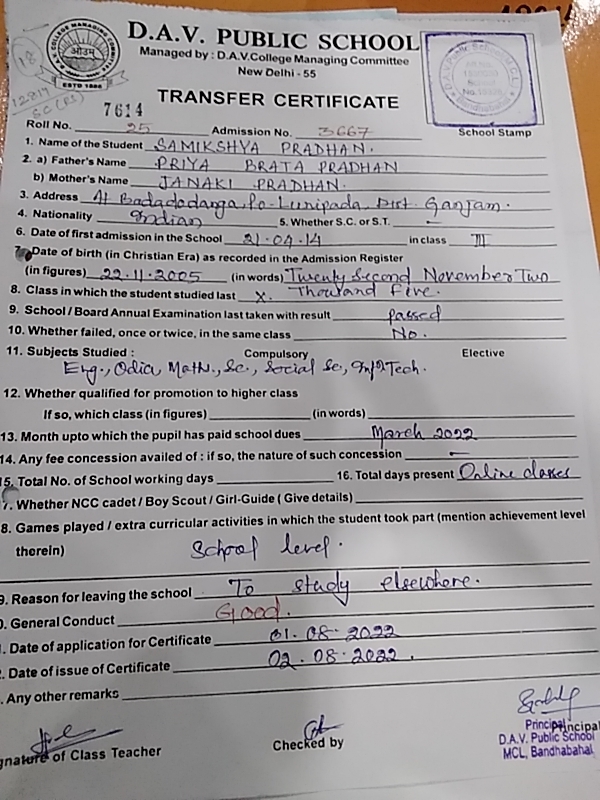 D.A.V. PUBLIC SCHOOL
Managed by : D.A.V.College Managing Committee
New Delhi - 55
TRANSFER CERTIFICATE
ESTD 1886
18
12819
SC (RS)
7614
Roll No. 25 Admission No. 3667 School Stamp
1. Name of the Student SAMIKSHYA PRADHAN.
2. a) Father's Name PRIYA BRATA PRADHAN
b) Mother's Name JANAKI PRADHAN.
3. Address At Badadadanga, Po-Lunipada Dist. Ganjam.
4. Nationality Indian 5. Whether S.C. or S.T. —
6. Date of first admission in the School 21.04.14 in class III
7. Date of birth (in Christian Era) as recorded in the Admission Register
(in figures) 22.11.2005 (in words) Twenty Second November Two
Thousand Five.
8. Class in which the student studied last X.
9. School / Board Annual Examination last taken with result passed
10. Whether failed, once or twice, in the same class No.
11. Subjects Studied : Compulsory Elective
Eng., Odia, Math., Sc., Social Sc, Inf. Tech.
12. Whether qualified for promotion to higher class
If so, which class (in figures) (in words)
13. Month upto which the pupil has paid school dues March 2022
14. Any fee concession availed of : if so, the nature of such concession —
15. Total No. of School working days 16. Total days present Online classes
7. Whether NCC cadet / Boy Scout / Girl-Guide ( Give details)
8. Games played / extra curricular activities in which the student took part (mention achievement level
therein) School level.
9. Reason for leaving the school To study elsewhere.
0. General Conduct Good.
. Date of application for Certificate 01.08.2022
. Date of issue of Certificate 02.08.2022.
. Any other remarks
gnature of Class Teacher Checked by Principal
Principal
D.A.V. Public School
MCL, Bandhabahal